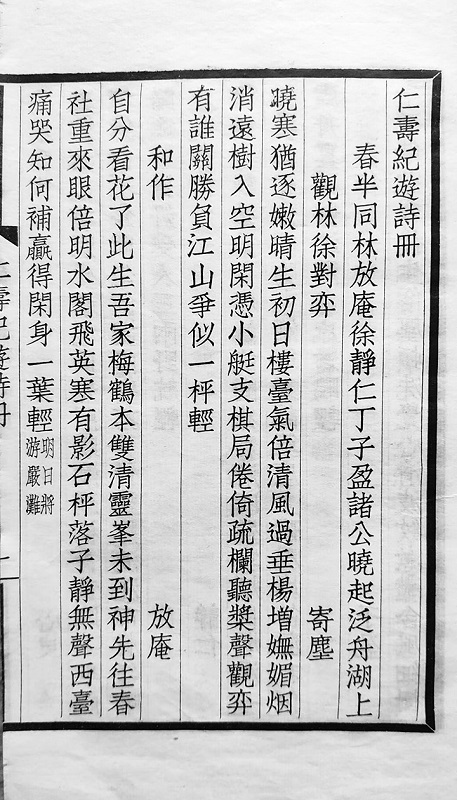 仁壽紀遊詩冊
春半同林放庵徐靜仁丁子盈諸公曉起泛舟湖上
觀林徐對弈 寄塵
曉寒猶逐嫩晴生初日樓臺氣倍清風過垂楊增嫵媚烟
消遠樹入空明閑憑小艇支棋局倦倚疏欄聽槳聲觀弈
有誰關勝負江山爭似一枰輕
和作 放庵
自分看花了此生吾家梅鶴本雙清靈峯未到神先往春
社重來眼倍明水閣飛英寒有影石枰落子靜無聲西臺
痛哭知何補贏得閑身一葉輕明日將
游嚴灘
仁壽紀遊詩冊
一